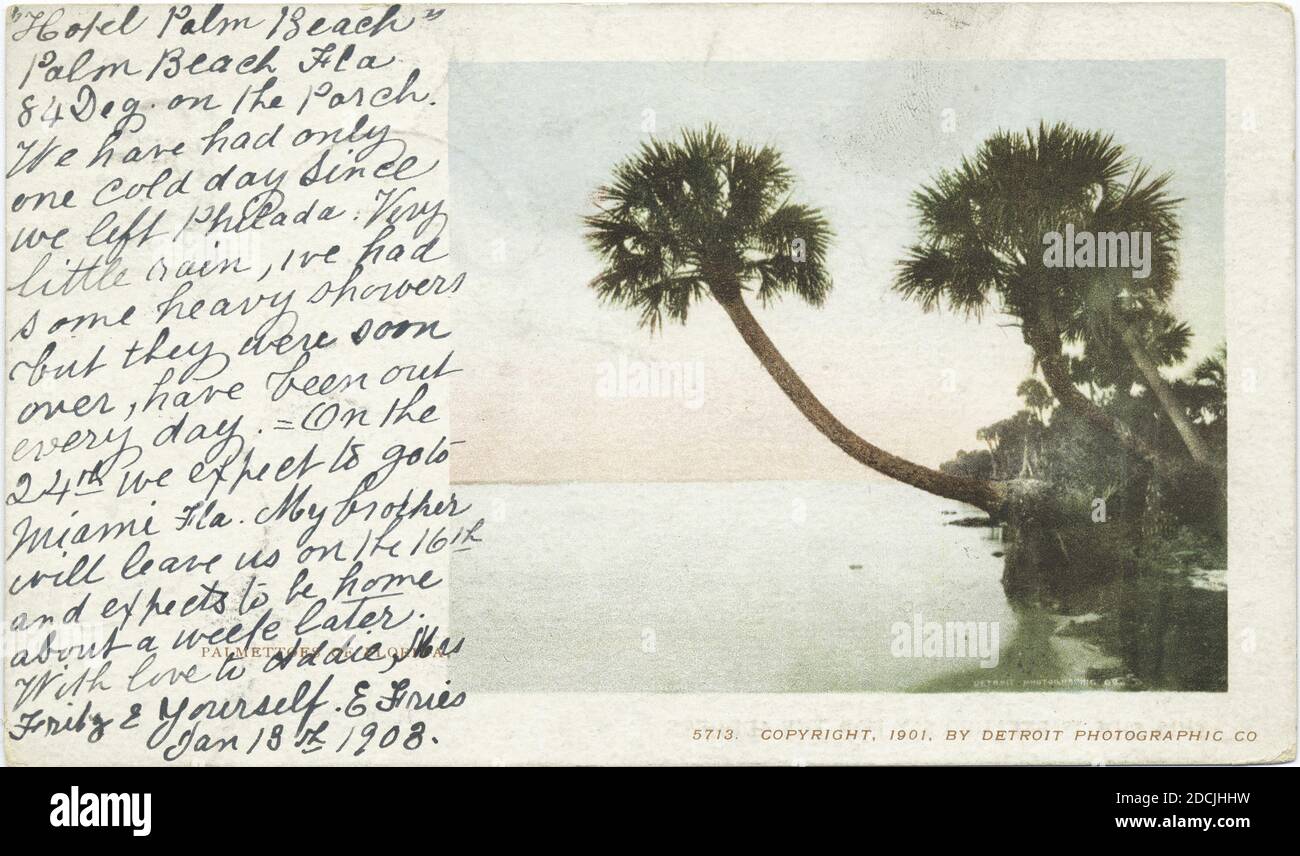 "Hotel Palm Beach"
Palm Beach Fla
84 Deg. on the Porch.
We have had only
one cold day since
we left Philada. Very
little rain, ive had
some heavy showers
but they were soon
over, have been out
every day. = On the
24th we expect to go to
Miami Fla. My brother
will leave us on the 16th
and expects to be home
about a week later.
PALMETTOES OF FLORIDA.
With love to Addie, Mrs
Fritz & Yourself. E Fries
Jan 13th 1903.
DETROIT PHOTOGRAPHIC CO.
5713. COPYRIGHT, 1901, BY DETROIT PHOTOGRAPHIC CO
alamy
alamy
alamy
alamy
Image ID: 2DCJHHW
www.alamy.com